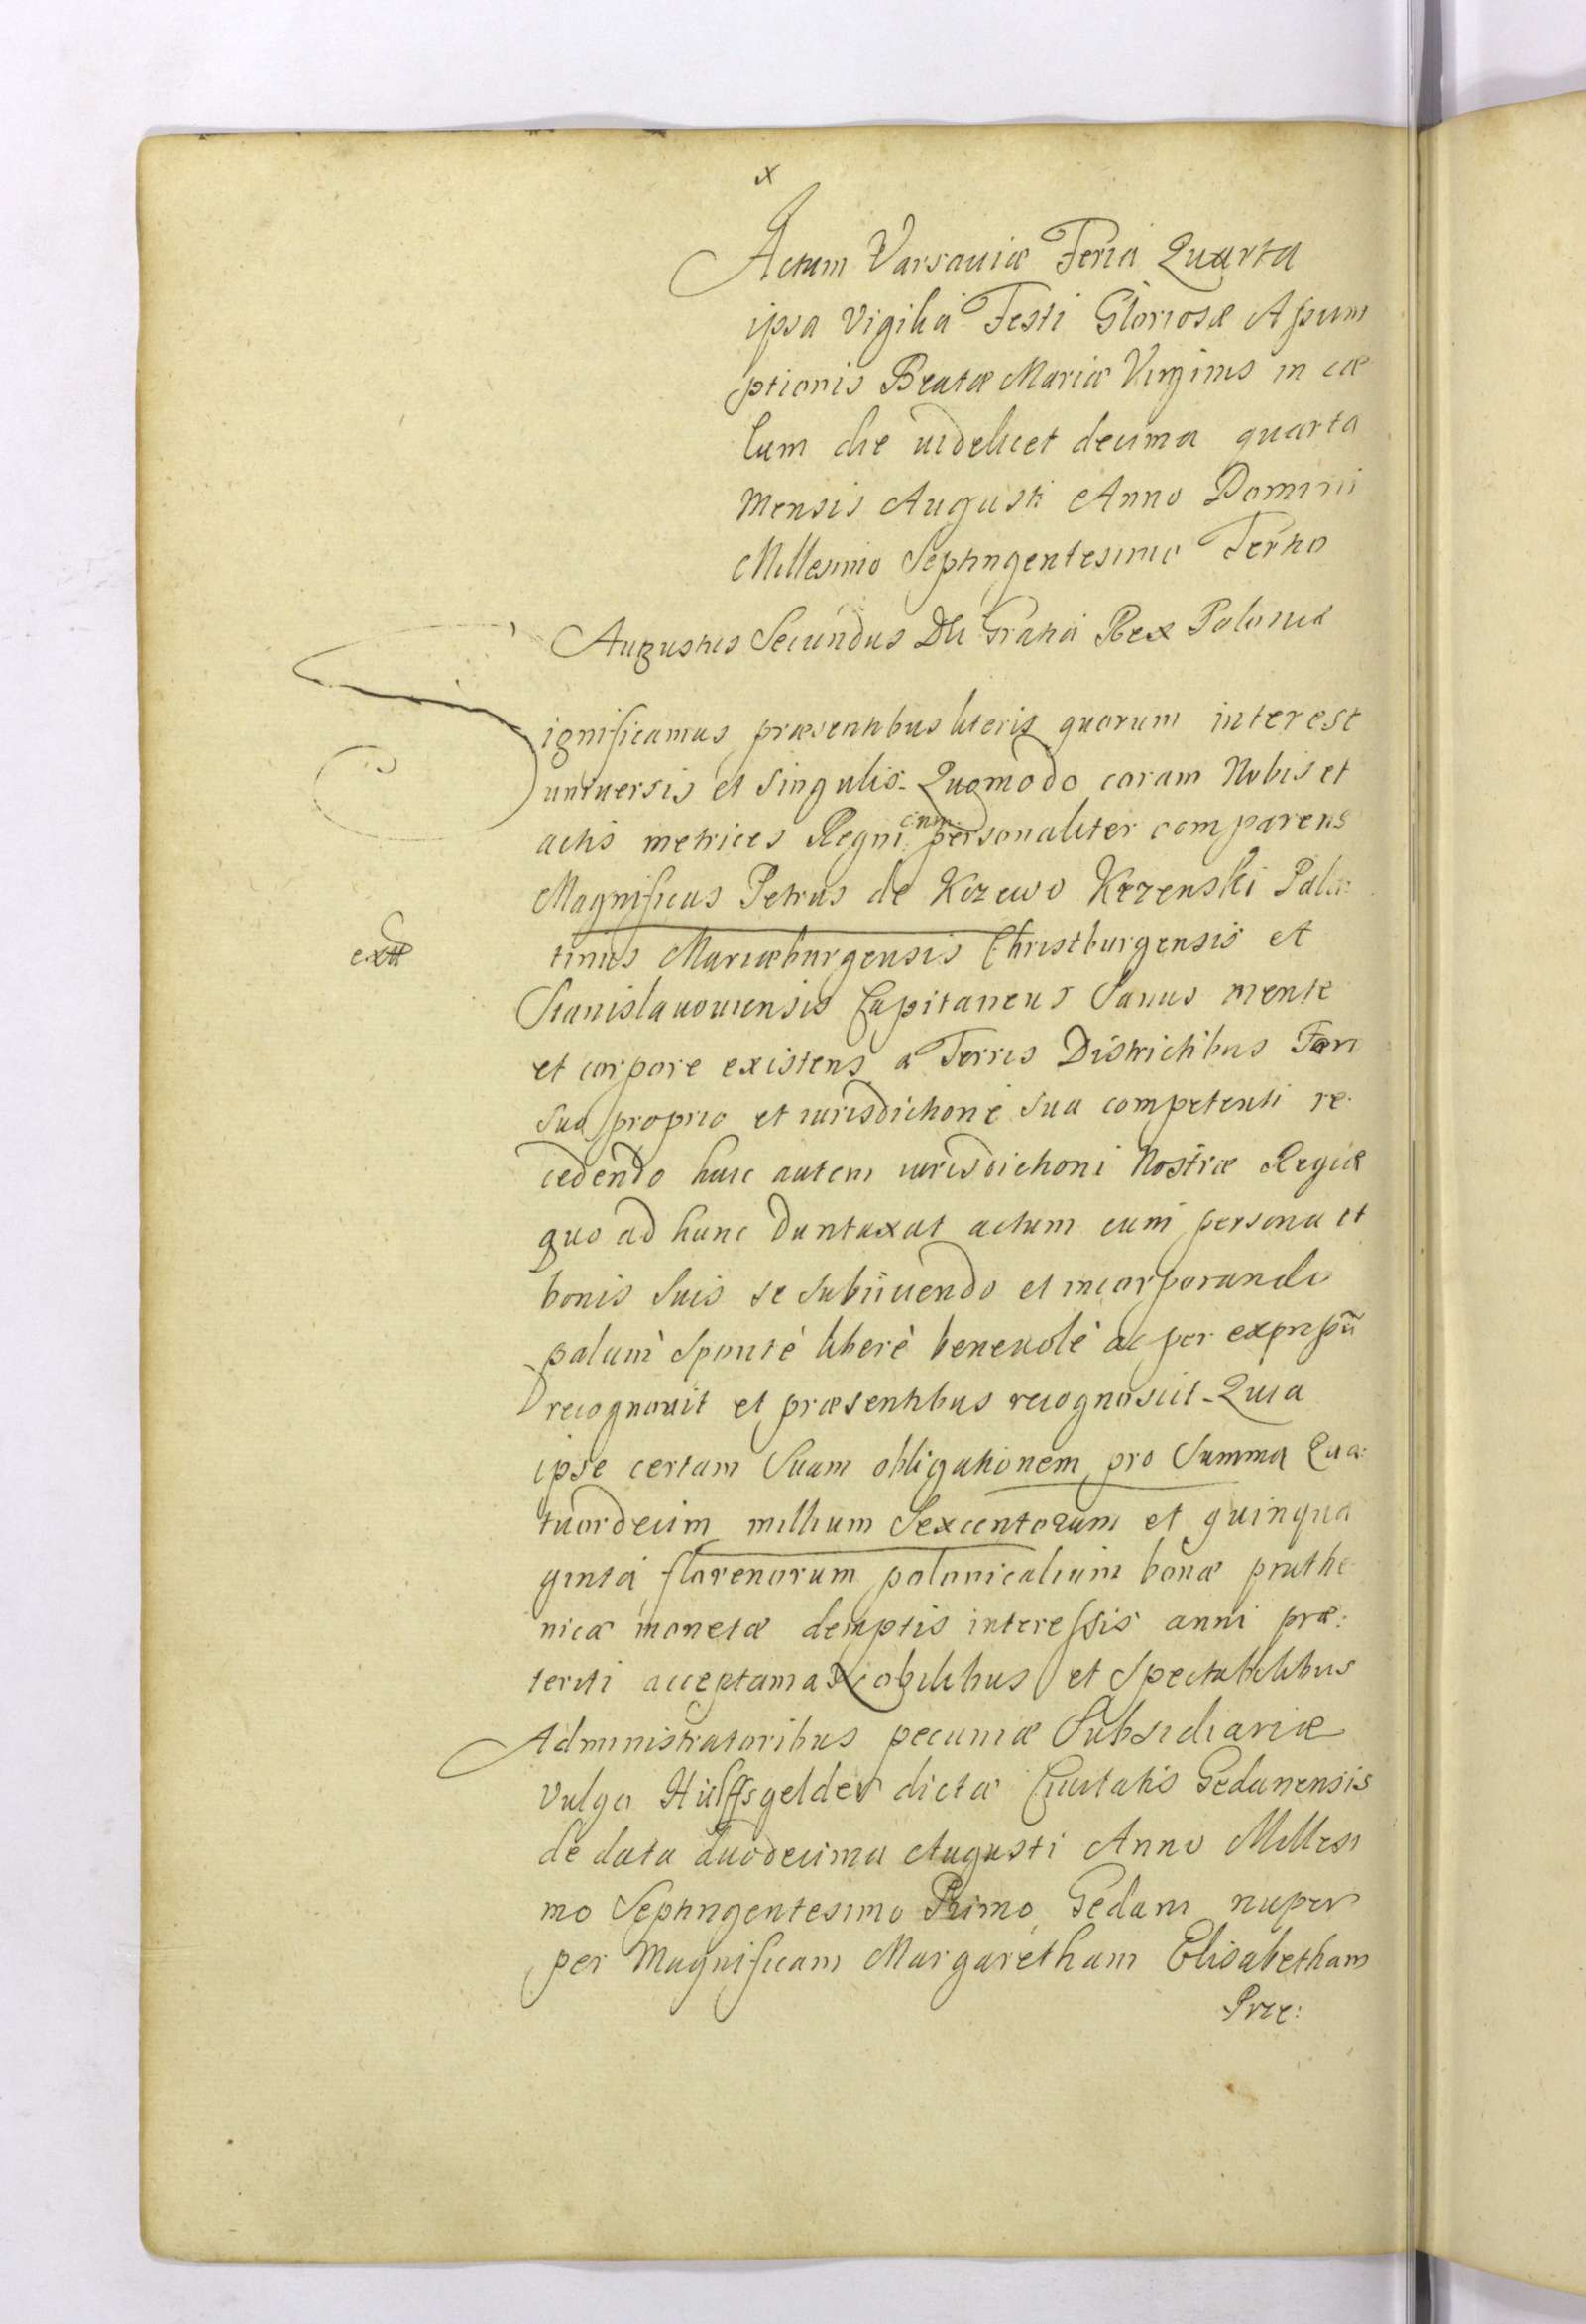 x
Actum Varsaviæ Feria Quarta
ipsa Vigilia Festi Gloriosæ Assum
ptionis Beatæ Mariæ Virginis in cæ
lum die uidelicet decima quarta
Mensis Augusti Anno Domini
Millesimo Septingentesimo Tertio
Augustus Secundus Dei Gratia Rex Poloniæ
Significamus præsentibus literis quorum interest
uniuersis et Singulis. Quomodo coram Nobis et
actis metrices Regni personaliter comparens
Magnificus Petrus de Krzewo Krzewski Pala:
extt
tinus Mariæburgensis Christburgensis et
Stanislauouiensis Capitaneus Sanus mente
et corpore existens a Terris Districtibus Foro
suo proprio et iurisdictione sua competenti re.
cedendo huic autem iurisdictioni Nostræ Regiæ
quo ad hunc duntaxat actum cum persona et
bonis Suis se subiiciendo et incorporando
palam Sponte libere beneuole ac per expressũ
recognouit et præsentibus recognoscit. Quia
ipse certam Suam obligationem pro Summa Qua:
tuordecim millium Sexcentorum et quinqua
ginta florenorum polonicalium bonæ pruthe
nicæ monetæ demptis interessis anni præ:
teriti acceptam a Nobilibus et Spectabilibus
Administratoribus pecuniæ Subsidiariæ
Vulgo Hülffsgelder dictæ Ciuitatis Gedanensis
de data duodecima Augusti Anno Millesi
mo Septingentesimo Primo Gedani nuper
per Magnificam Margaretham Elisabetham
Prze: